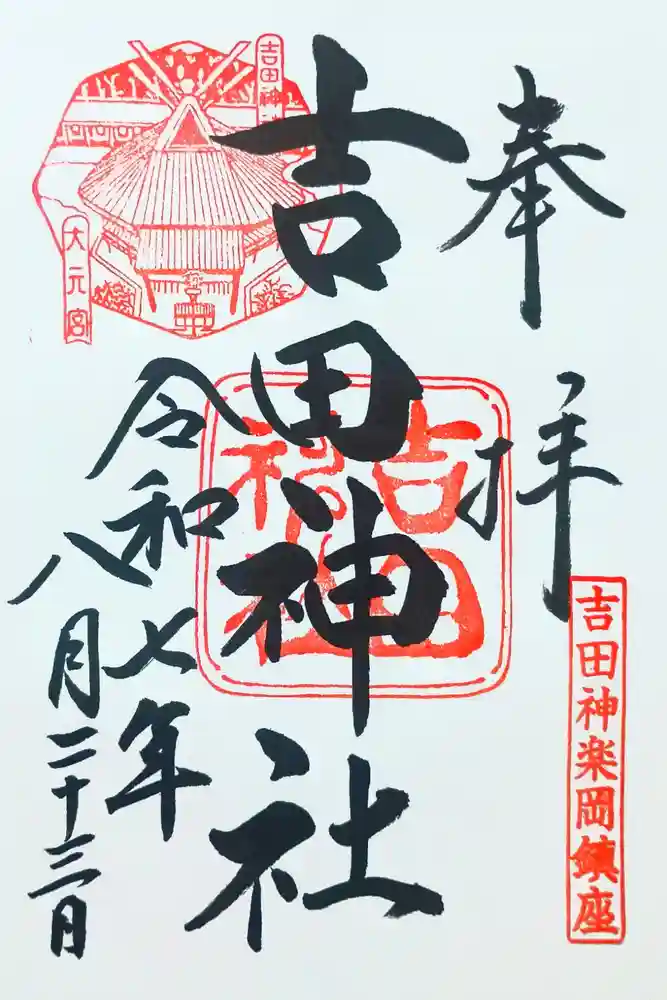 奉拝
吉田神楽岡鎮座
吉田神社
吉田
神社
令和七年
八月二十三日
吉田神社
大元宮